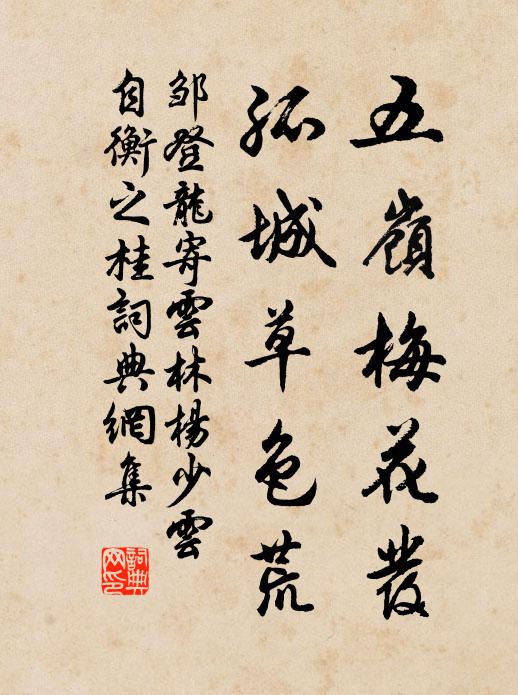 五嶺梅花發
孤城草色荒
邹登龍寄雲林楊少雲
自衡之桂詞典網集
詞典
网印